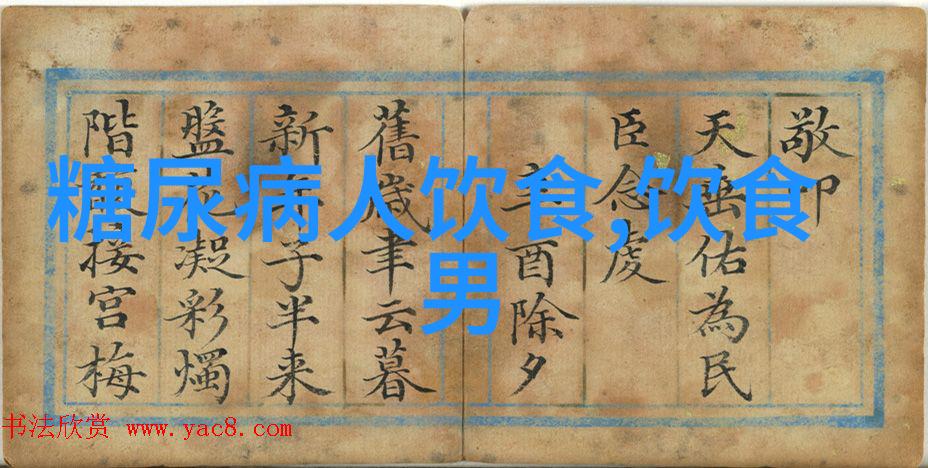 糖尿病人饮食,饮食
男
敬卬
天垂佑為民
臣念虔
辛酉除夕
舊歲聿云暮
新年子半来
盤花凝彩燭
階接宮梅
书法欣赏 www.yac8.com